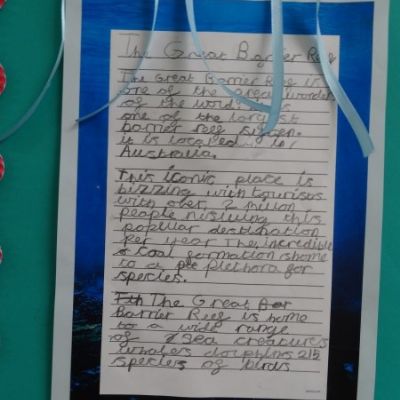 The Great Barrier Rief
The Great Barrier Rief is
one of the great wonders
of the world
one of the largist
barrier reef
it is located in
Australia.
This iconic place is
bizzing with tourists
with over, 2 million
people this
populer destination
per year The incredible
formation is home
to a plethora for
species.
The Great
Barrier Rief is home
to a wide range
of sea creatures
whales dolphins 215
species of birds